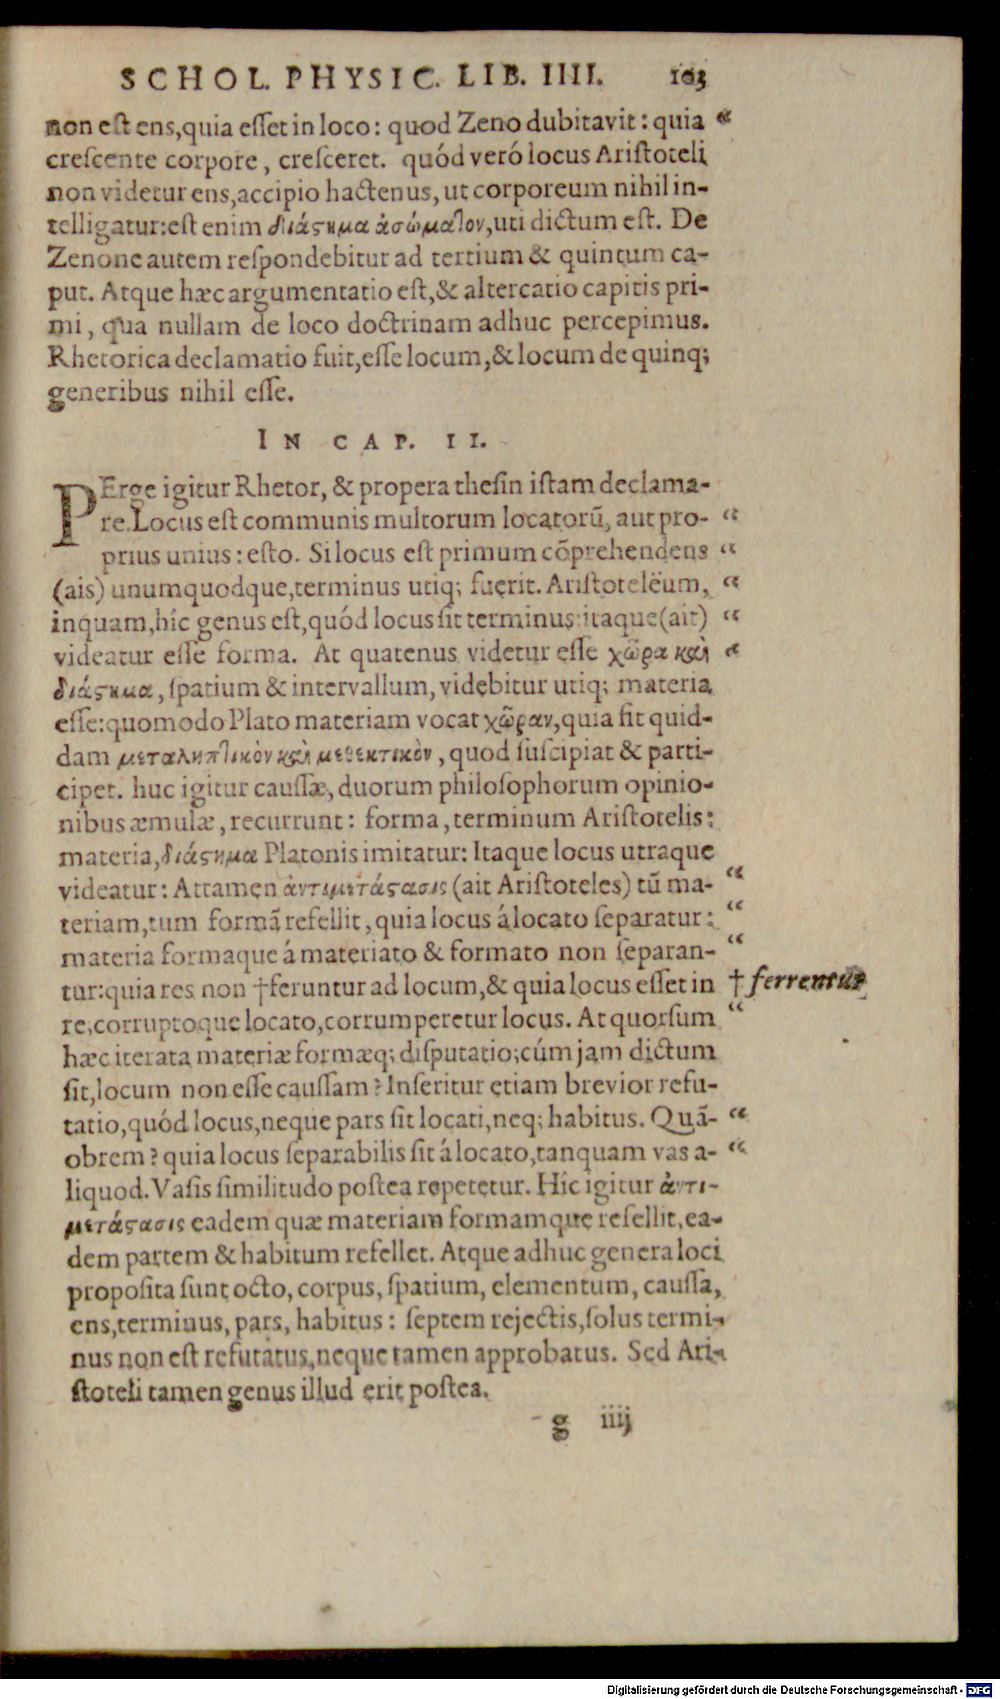 SCHOL. PHYSIC. LIB. IIII. 103
non est ens, quia esset in loco: quod Zeno dubitavit: quia “
crescente corpore, cresceret. quód veró locus Aristoteli
non videtur ens, accipio hactenus, ut corporeum nihil in-
telligatur: est enim διάϛημα ἀσώμαλον, uti dictum est. De
Zenone autem respondebitur ad tertium & quintum ca-
put. Atque hæc argumentatio est, & altercatio capitis pri-
mi, qua nullam de loco doctrinam adhuc percepimus.
Rhetorica declamatio fuit, esse locum, & locum de quinq;
generibus nihil esse.
IN CAP. II.
PErge igitur Rhetor, & propera thesin istam declama-
re. Locus est communis multorum locatorũ, aut pro- “
prius unius: esto. Si locus est primum cõprehendens “
(ais) unumquodque, terminus utiq; fuerit. Aristotelëum, “
inquam, híc genus est, quód locus sit terminus: itaque (ait) “
videatur esse forma. At quatenus videtur esse χῶρα καὶ “
διάϛημα, spatium & intervallum, videbitur utiq; materia
esse: quomodo Plato materiam vocat χῶραν, quia sit quid-
dam μεταληπτικὸν καὶ μεθεκτικὸν, quod suscipiat & parti-
cipet. huc igitur caussæ, duorum philosophorum opinio-
nibus æmulæ, recurrunt: forma, terminum Aristotelis:
materia, διάϛημα Platonis imitatur: Itaque locus utraque
videatur: Attamen ἀντιμετάϛασις (ait Aristoteles) tũ ma- “
teriam, tum formã refellit, quia locus á locato separatur: “
materia formaque á materiato & formato non separan- “
tur: quia res non †feruntur ad locum, & quia locus esset in † ferrentur
re, corruptoque locato, corrumperetur locus. At quorsum “
hæc iterata materiæ formæq; disputatio; cúm jam dictum
sit, locum non esse caussam? Inseritur etiam brevior refu-
tatio, quód locus, neque pars sit locati, neq; habitus. Quã- “
obrem? quia locus separabilis sit á locato, tanquam vas a- “
liquod. Vasis similitudo postea repetetur. Hic igitur ἀντι-
μετάϛασις eadem quæ materiam formamque refellit, ea-
dem partem & habitum refellet. Atque adhuc genera loci
proposita sunt octo, corpus, spatium, elementum, caussa,
ens, terminus, pars, habitus: septem rejectis, solus termi-
nus non est refutatus, neque tamen approbatus. Sed Ari-
stoteli tamen genus illud erit postea.
g iiij
Digitalisierung gefördert durch die Deutsche Forschungsgemeinschaft - DFG